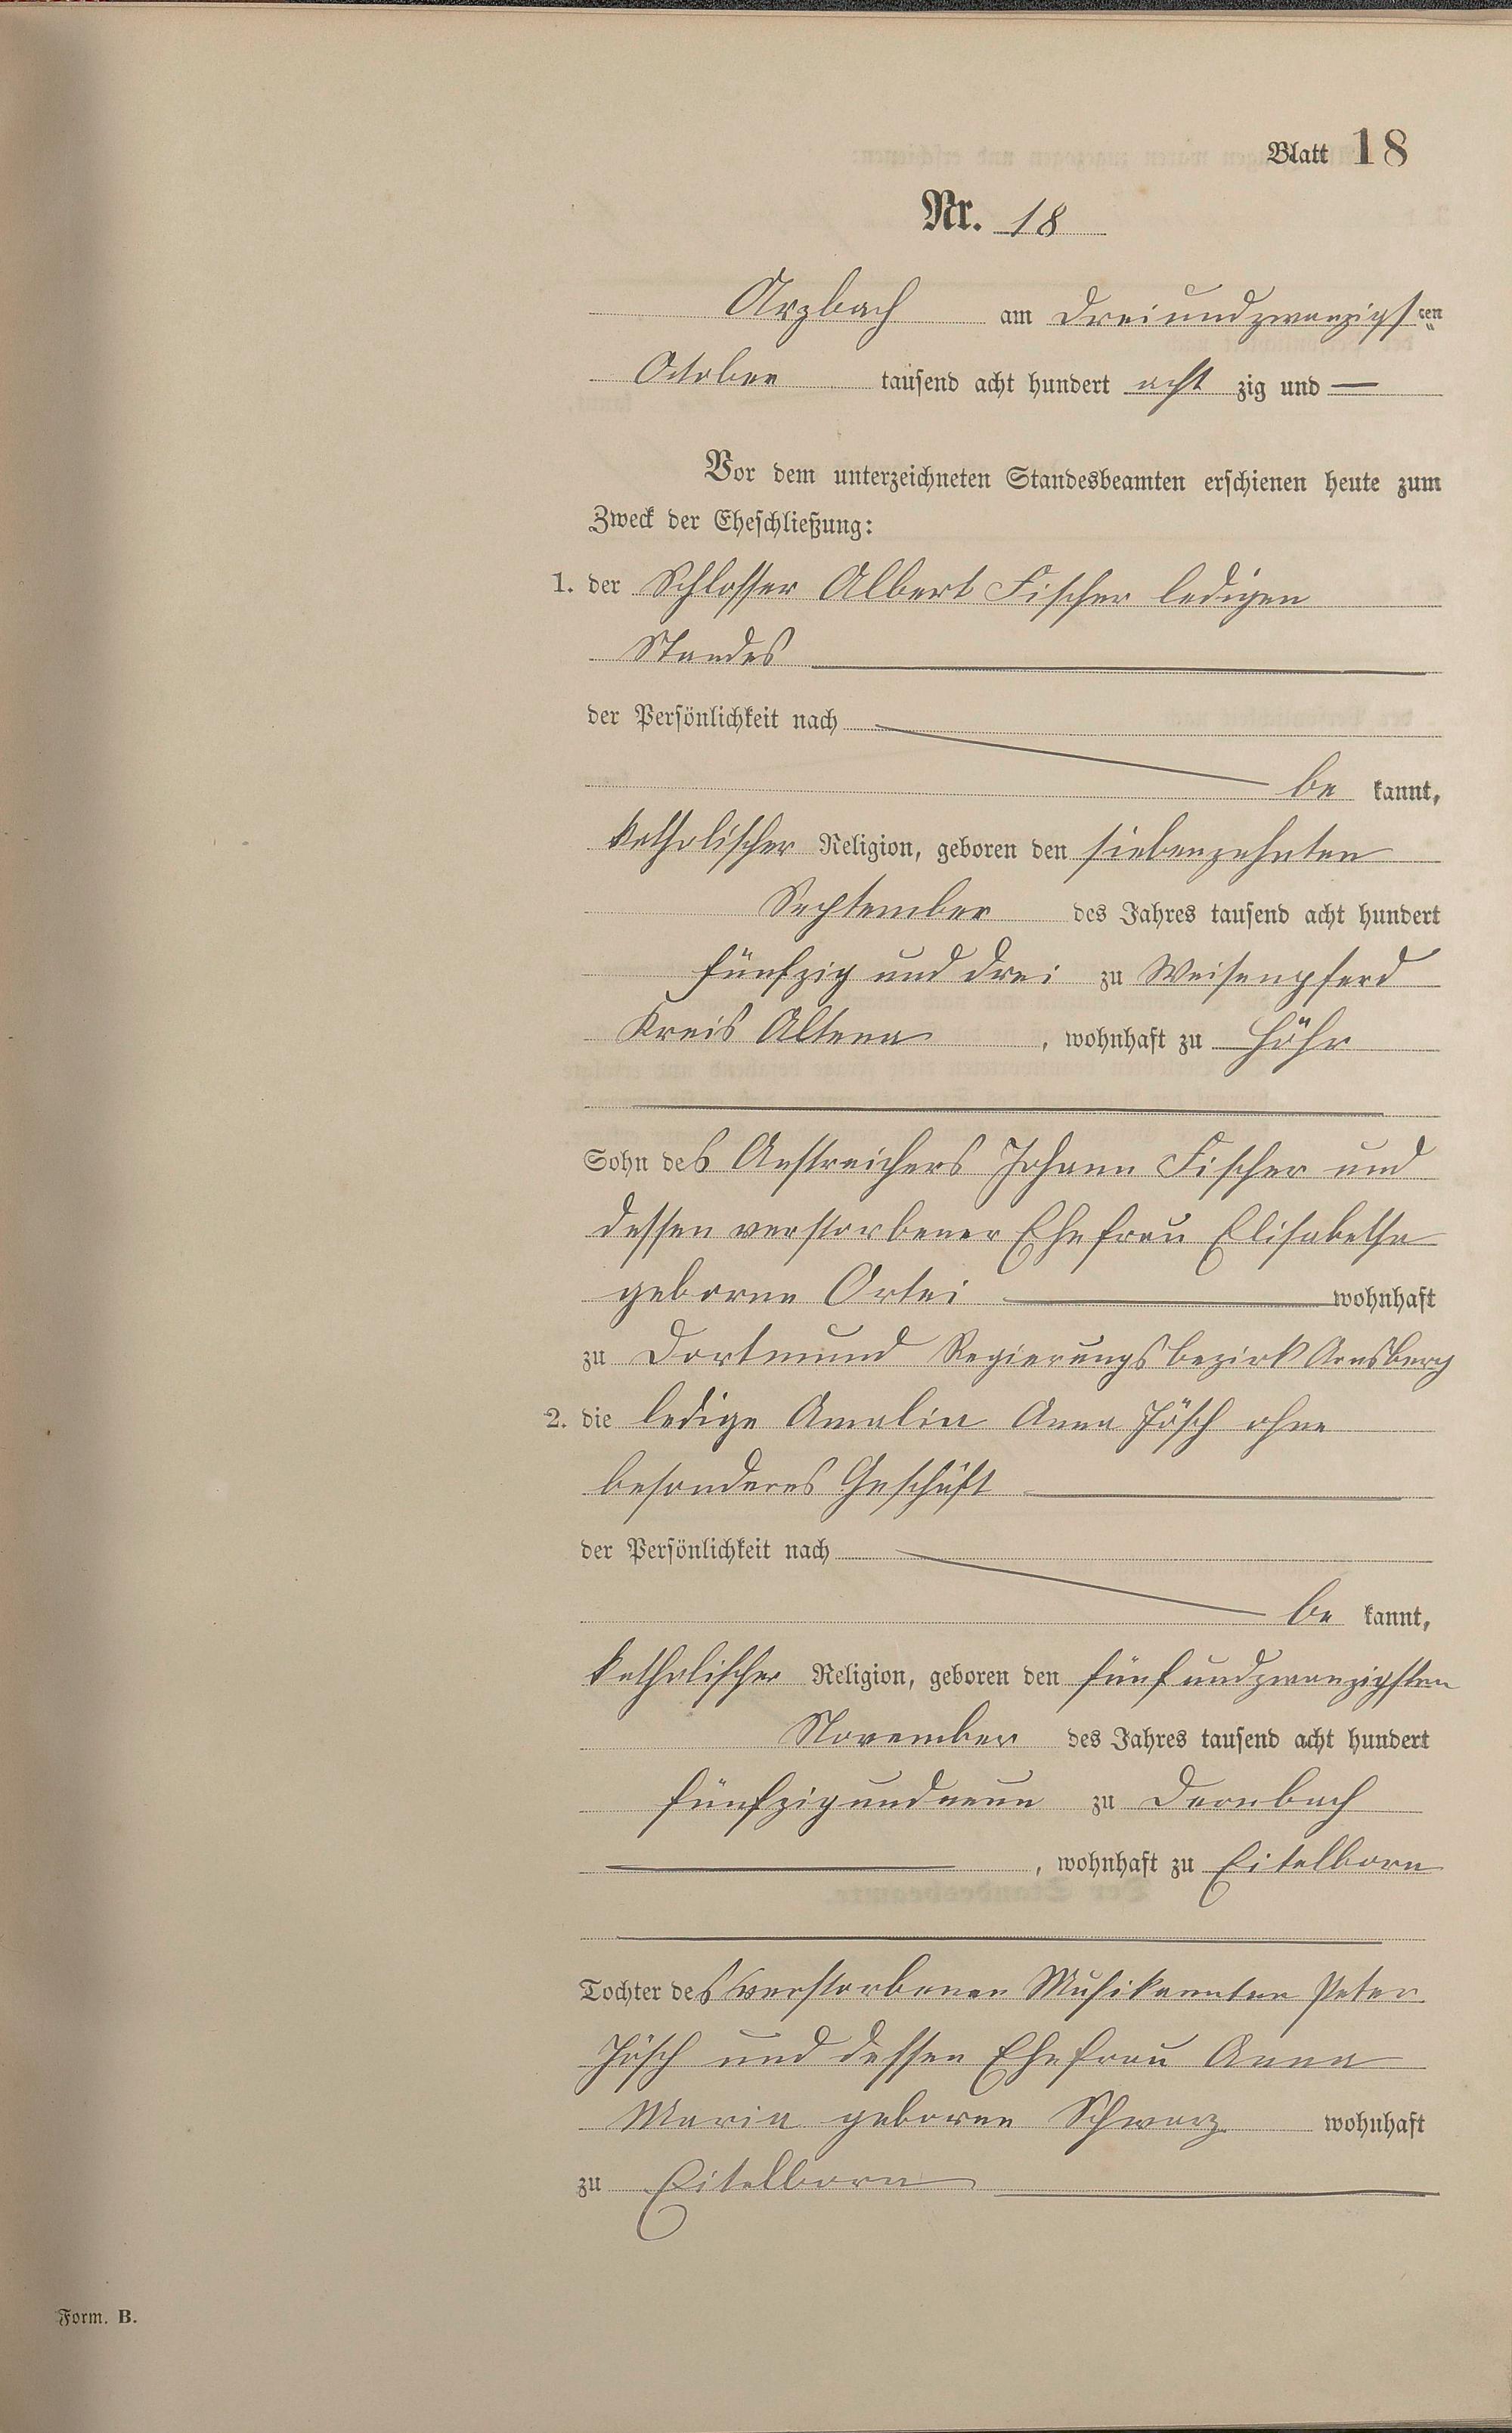 Blatt 18
Nr. 18
Arzbach am dreiundzwanzigsten
October tausend acht hundert acht zig und —
Vor dem unterzeichneten Standesbeamten erschienen heute zum
Zweck der Eheschließung:
1. der Schlosser Albert Fischer ledigen
Standes
der Persönlichkeit nach
be kannt,
katholischer Religion, geboren den siebenzehnten
September des Jahres tausend acht hundert
fünfzig und drei zu Weisenpferd
Kreis Altena, wohnhaft zu Höhr
Sohn des Anstreichers Johann Fischer und
dessen verstorbener Ehefrau Elisabetha
geborne Ortei wohnhaft
zu Dortmund Regierungsbezirk Arnsberg
2. die ledige Amalia Anna Jösch ohne
besonderes Geschäft
der Persönlichkeit nach
be kannt,
katholischer Religion, geboren den fünfundzwanzigsten
November des Jahres tausend acht hundert
fünfzigundneun zu Dernbach
, wohnhaft zu Eitelborn
Tochter des verstorbenen Musikanten Peter
Jösch und dessen Ehefrau Anna
Maria geborne Schwarz wohnhaft
zu Eitelborn
Form. B.